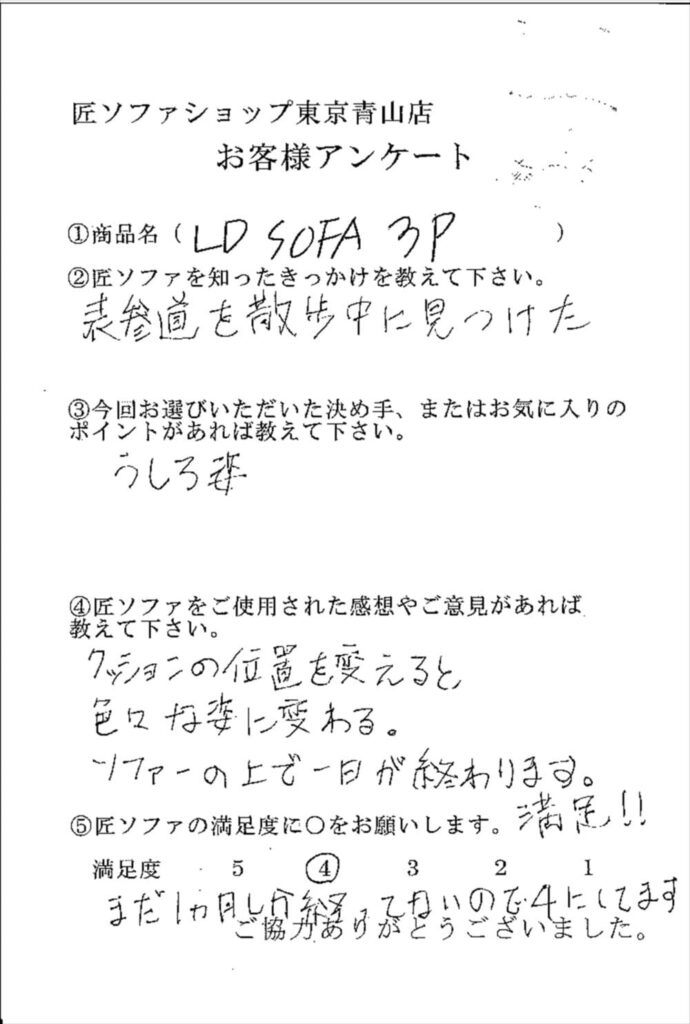 匠ソファショップ東京青山店
お客様アンケート
①商品名（ LD SOFA 3P ）
②匠ソファを知ったきっかけを教えて下さい。
表参道を散歩中に見つけた
③今回お選びいただいた決め手、またはお気に入りの
ポイントがあれば教えて下さい。
うしろ姿
④匠ソファをご使用された感想やご意見があれば
教えて下さい。
クッションの位置を変えると、
色々な姿に変わる。
ソファーの上で一日が終わります。
満足!!
⑤匠ソファの満足度に〇をお願いします。
満足度 5 ④ 3 2 1
まだ1ヵ月しか経ってないので4にしてます
ご協力ありがとうございました。